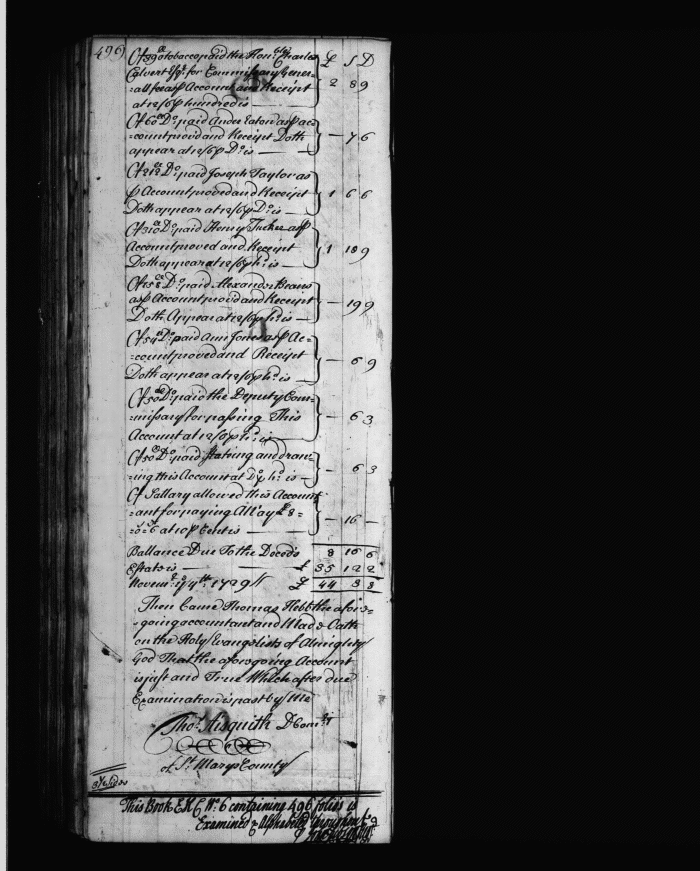 496
Of 390 tobacco paid the Hon. ble Charles £ S D
Calvert Esqr. for Commissary Gener=
=all fees as p Account and Receipt 2 8 9
at 12/6 p hundred is
Of 60 Do. paid Andw Eaton as p ac=
=count provd and Receipt Doth — 7 6
appear at 12/6 p Do. is
Of 212 Do. paid Joseph Taylor as
p Account proved and Receipt 1 6 6
Doth appear at 12/6 p Do. is
Of 310 Do. paid Henry Tucker as p
Account proved and Receipt 1 18 9
Doth appear at 12/6 p h. is
Of 158 Do. paid Alexander Beans
as p Account provd and Receipt — 19 9
Doth Appear at 12/6 p h. is
Of 54 Do. paid Ann Jones as p Ac=
=count proved and Receipt — 6 9
Doth appear at 12/6 p h. is
Of 50 Do. paid the Deputy Com=
=missary for passing This — 6 3
Account at 12/6 p h. is
Of 50 Do. paid stating and draw=
=ing this Account at Do. p h. is — 6 3
Of Sallary allowed this Account
=ant for paying away £ 8=
=0=6 at 10 p Cent is — 16 —
Ballance Due To the Deced's 8 16 6
Estate is £ 35 12 2
Novem. ye 4th. 1729 £ 44 8 8
Then Came Thomas Hebb the afore=
=going accountant and Made Oath
on the Holy Evangelists of Almighty
God That the aforegoing Account
is just and True Which after due
Examination is past by Me
Tho. Aisquith D Com. ry
of St. Marys County
3 1/2 sides
This Book E.H.C. No. 6 containing 496 folios is
Examined & Alphabeted throughout